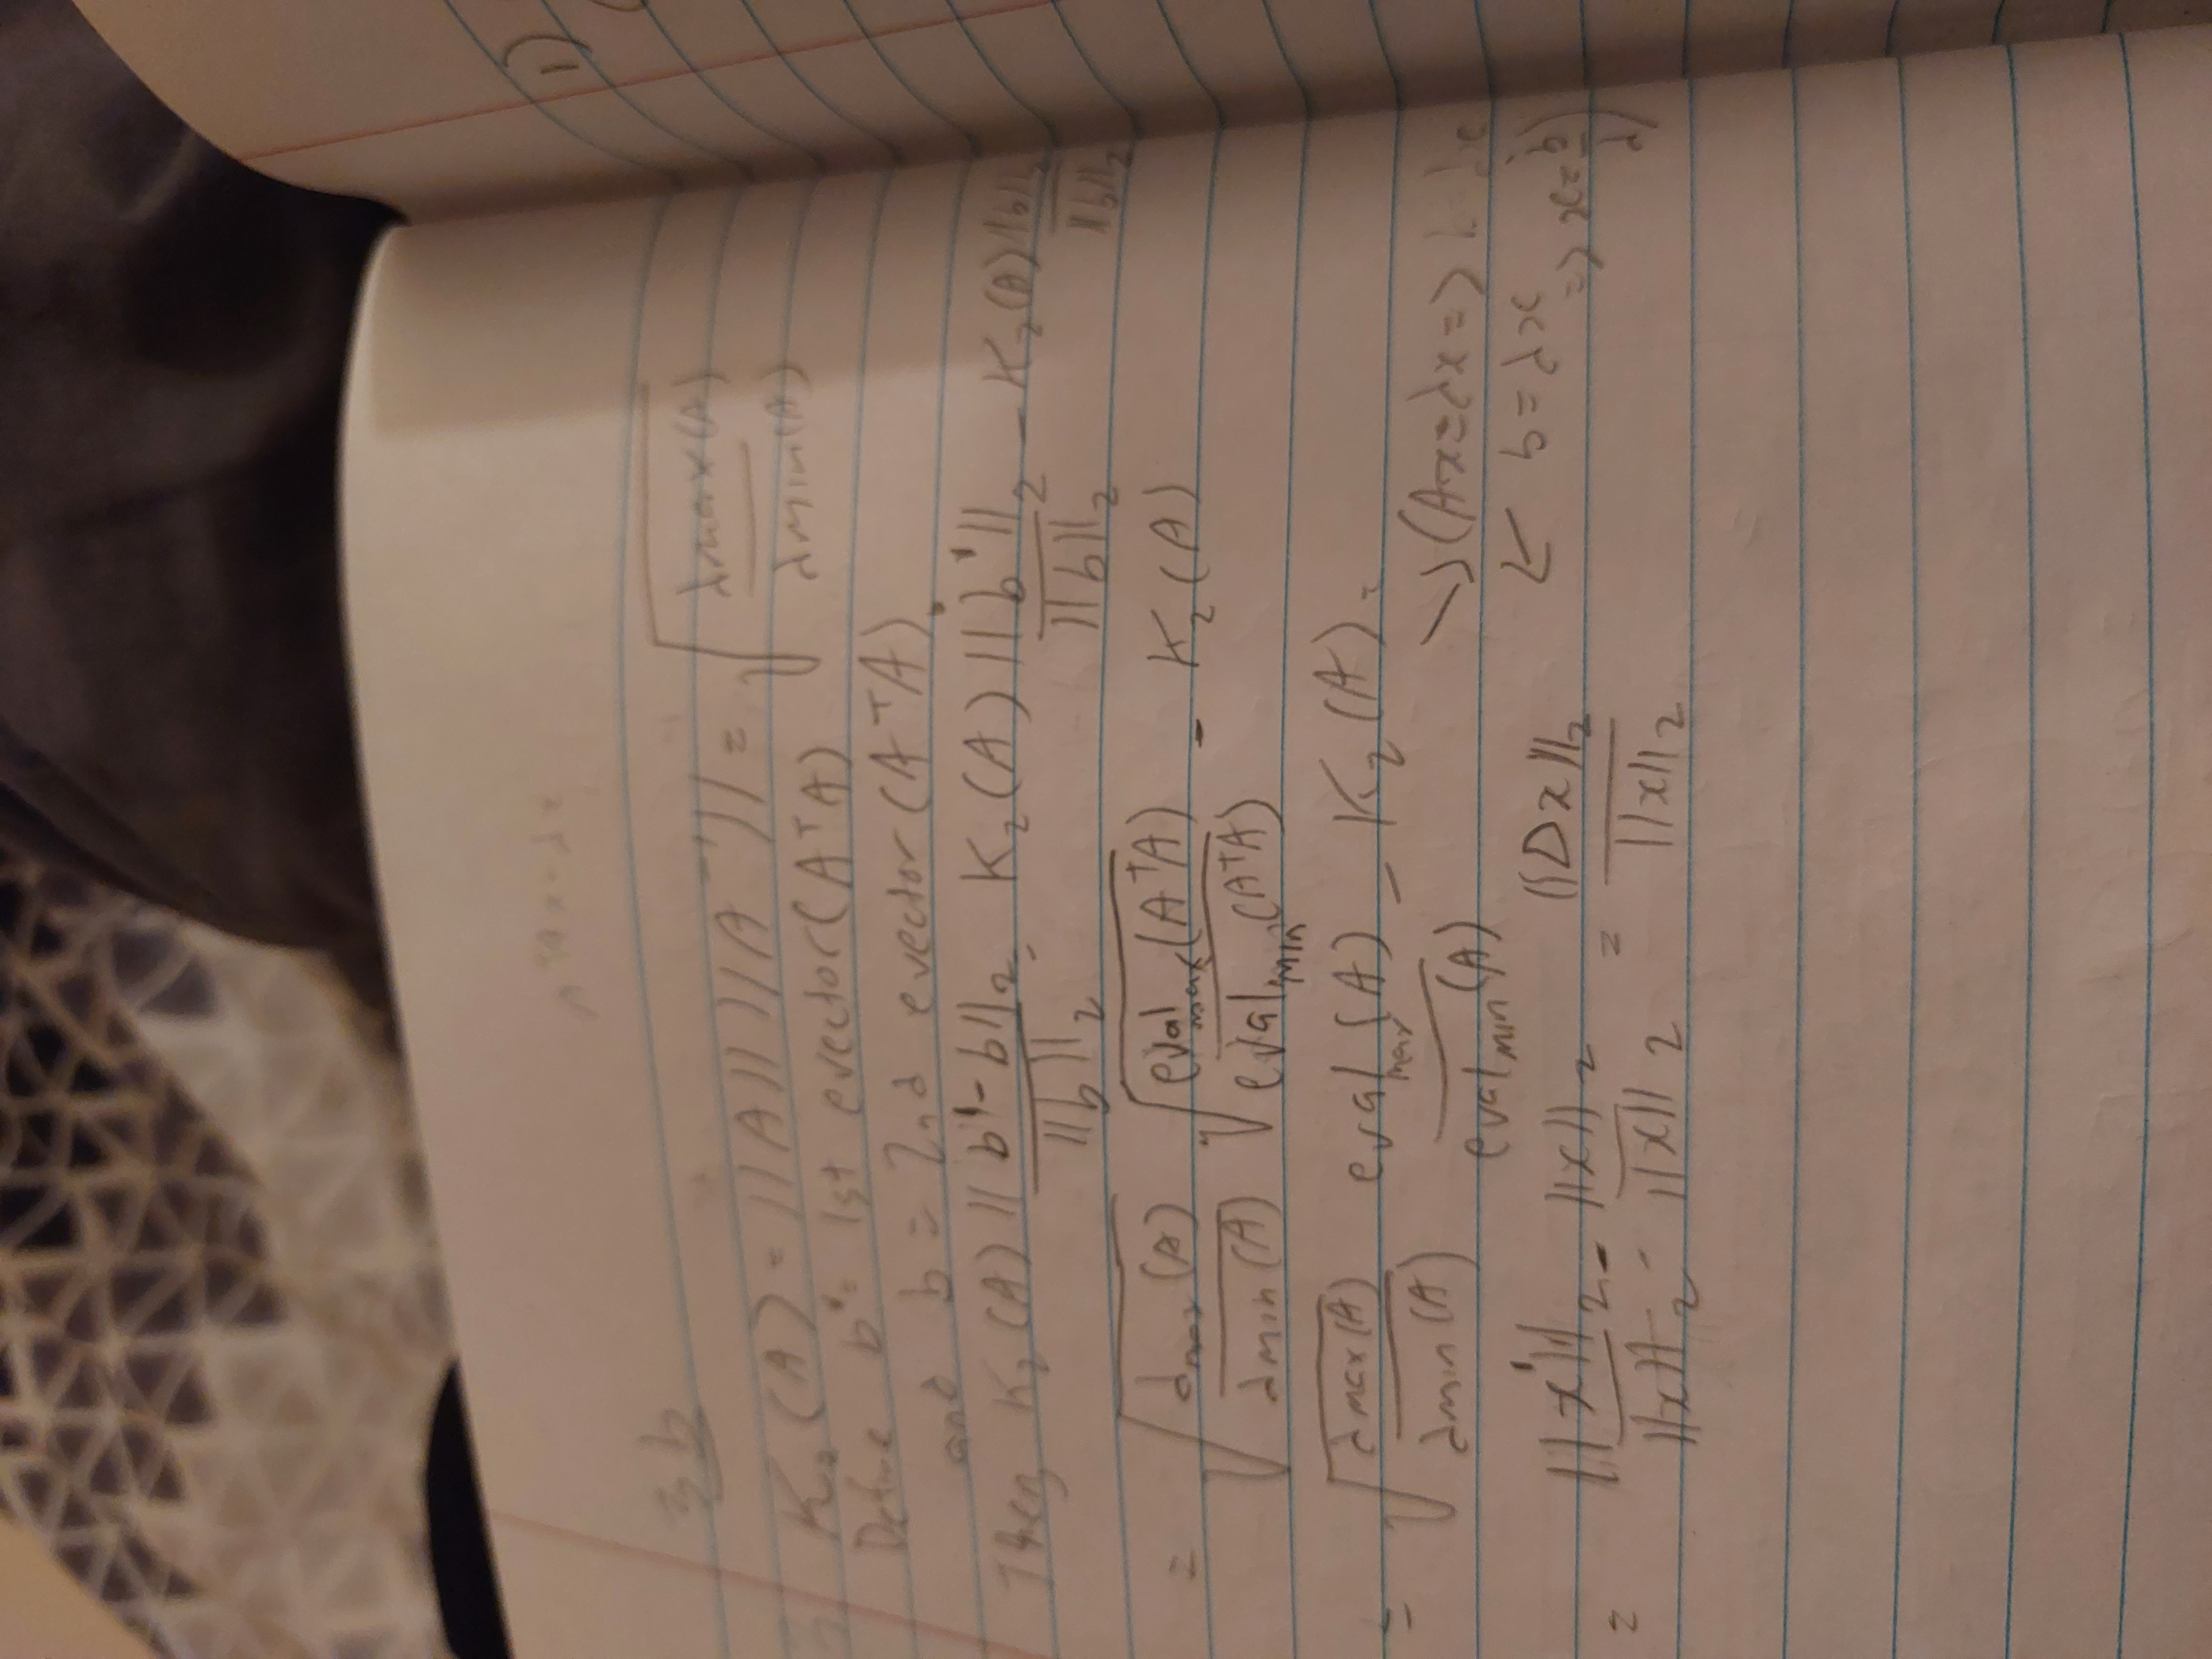 3b
K₂(A) = ||A|| ||A⁻¹|| = √(λmax(A) / λmin(A))
Define b' = 1st evector(AᵀA)
and b = 2nd evector(AᵀA).
Then K₂(A) ||b'-b||₂ / ||b||₂ = K₂(A) ||b'||₂ / ||b||₂ - K₂(A) ||b||₂ / ||b||₂
= √(λmax(A) / λmin(A)) √(eval max(AᵀA) / eval min(AᵀA)) - K₂(A)
= √(λmax(A) / λmin(A)) eval max(A) / eval min(A) - K₂(A) =
(Ax=λx =>
b=λx
=> x = b/λ)
= ||x'||₂ / ||x||₂ - ||x||₂ / ||x||₂ = ||Dx||₂ / ||x||₂
1)